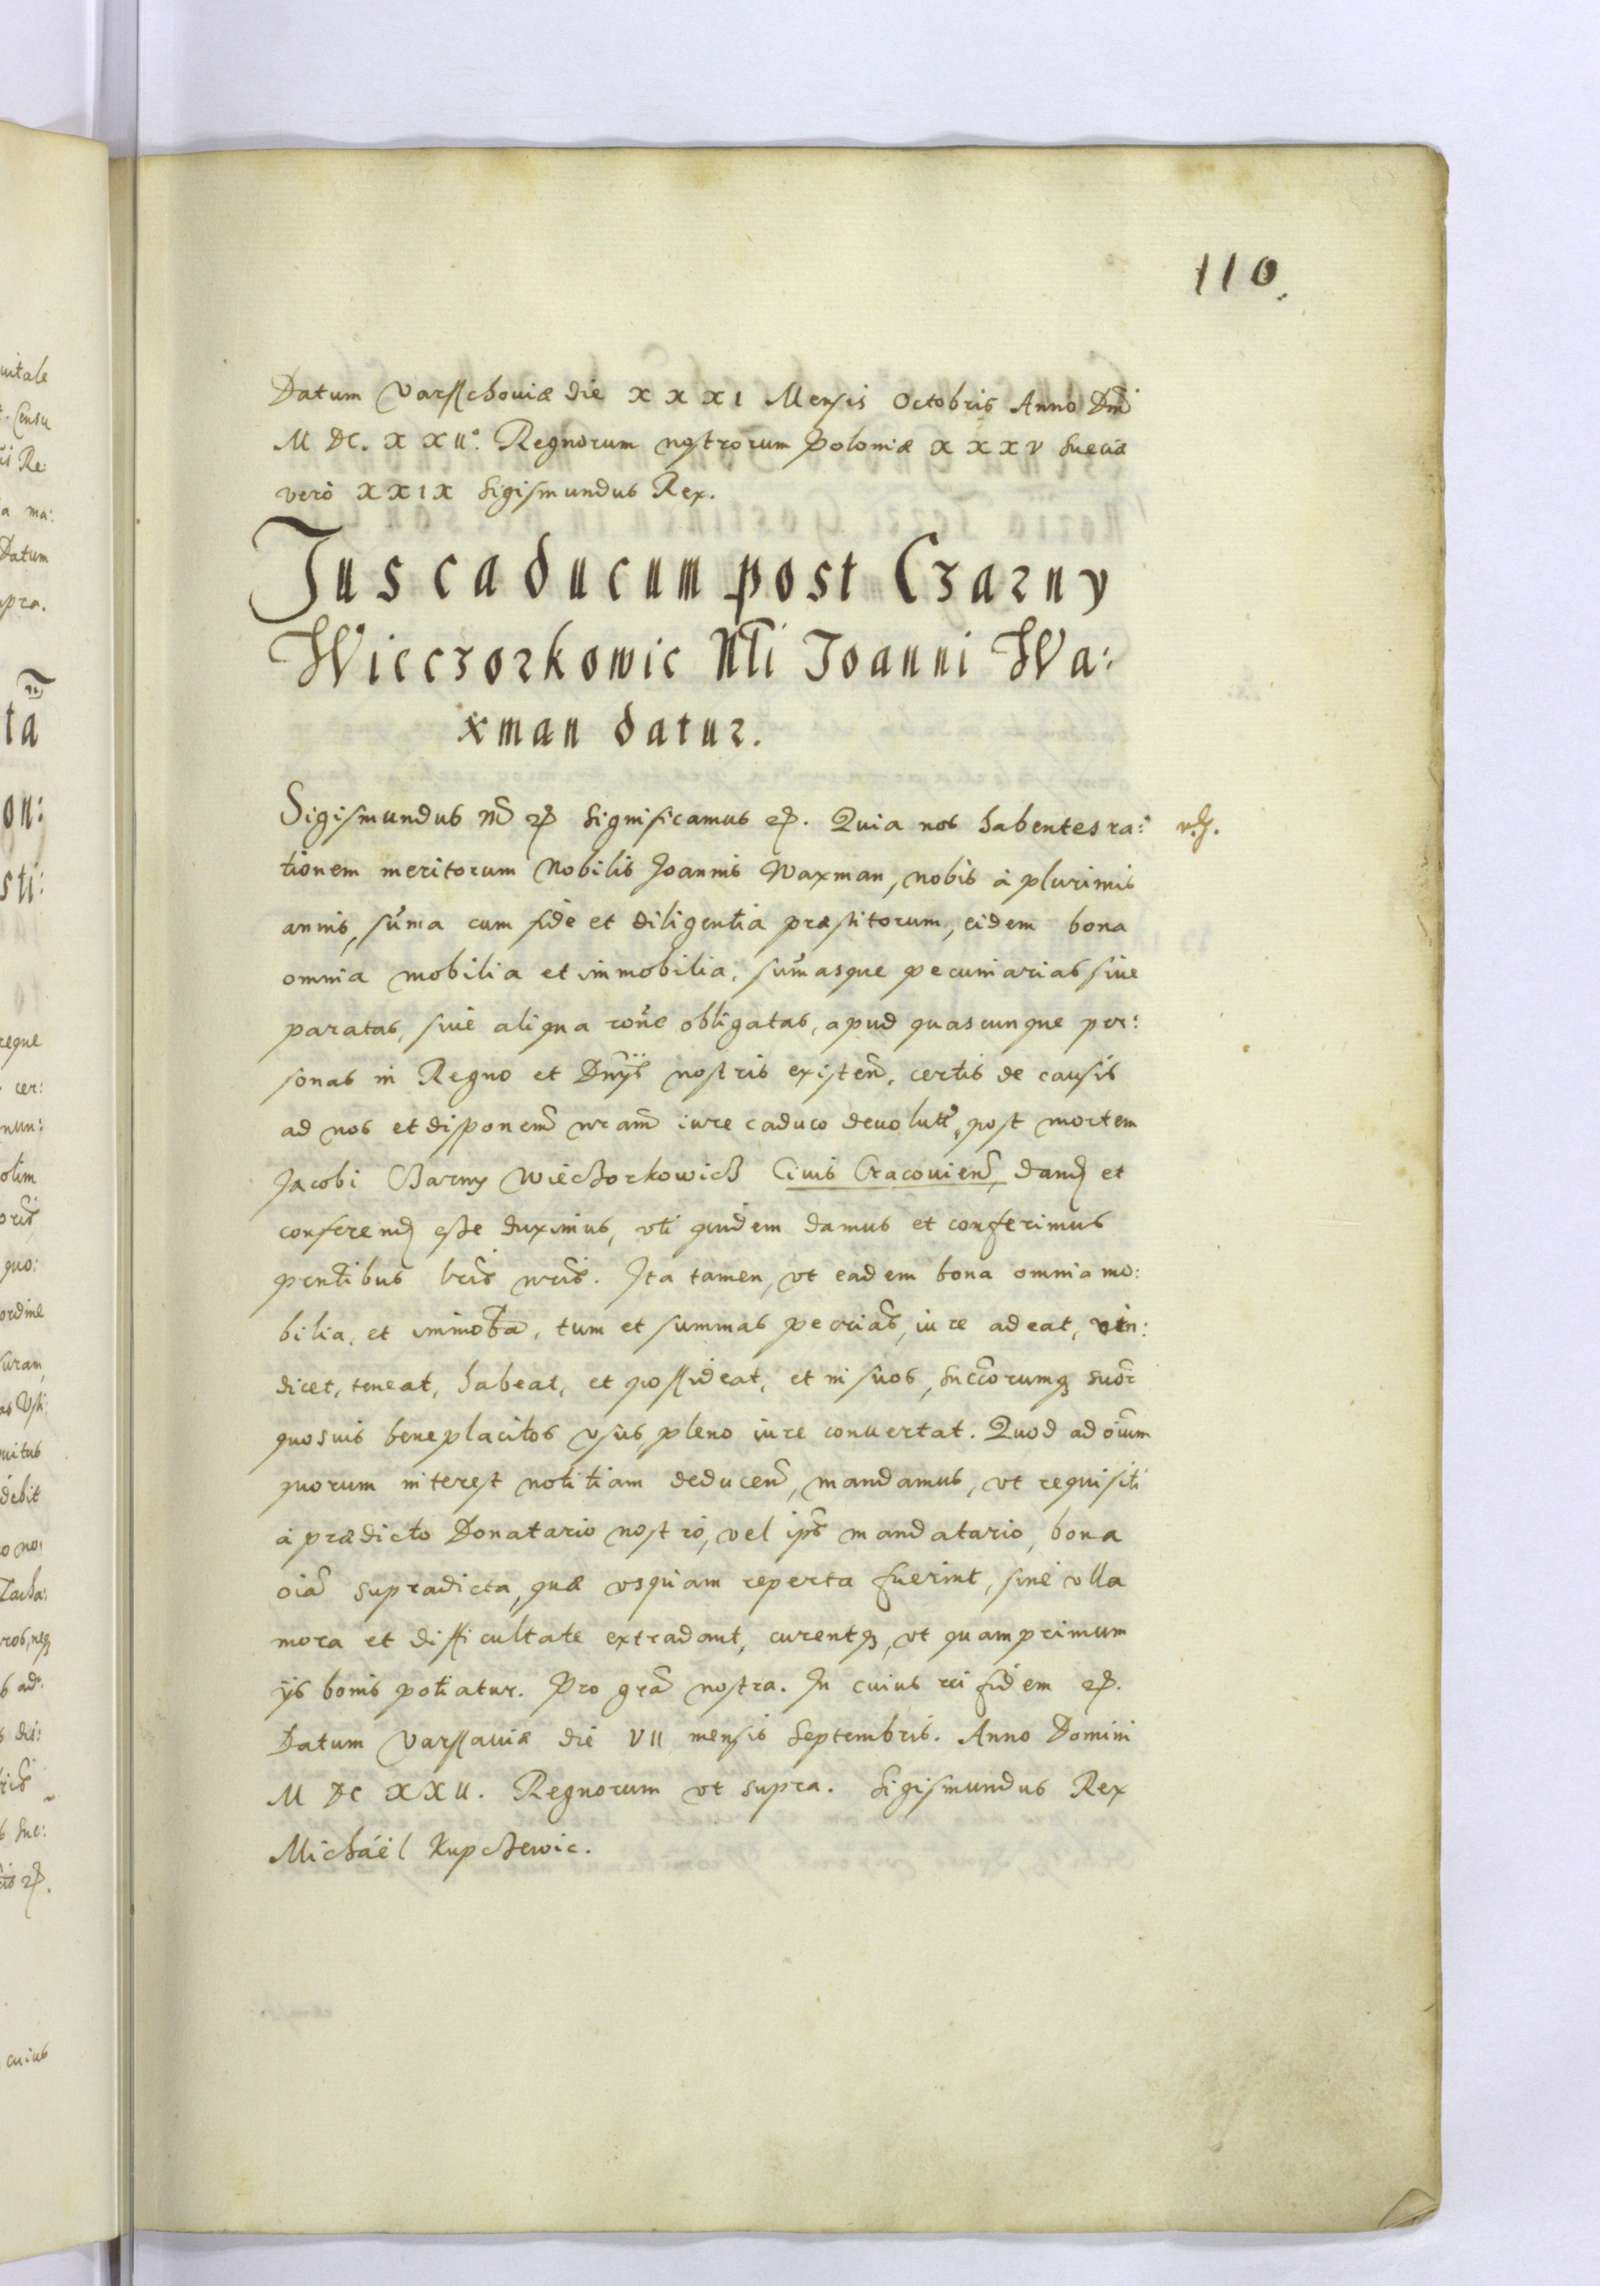 110.
Datum Varsschouiæ die XXXI Mensis Octobris Anno Dni
M DC. XXII°. Regnorum nostrorum Poloniæ XXXV Sueciæ
vero XXIX Sigismundus Rex.
Jus caducum post Czarny
Wieczorkowic Nli Joanni Wa:
xman datur.
Sigismundus etc Significamus etc. Quia nos habentes ra:
tionem meritorum Nobilis Joannis Waxman, nobis à plurimis
annis, suma cum fide et diligentia præstitorum, eidem bona
omnia mobilia et immobilia, sumasque pecuniarias siue
paratas, siue aliqua rone obligatas, apud quascunque per:
sonas in Regno et Dnÿs nostris existen, certis de causis
ad nos et disponem nram iure caduco deuolut, post mortem
Jacobi Czarny Wieczorkowicz Ciuis Cracouien, dand et
conferend esse duximus, vti quidem damus et conferimus
pentibus lris nris. Ita tamen, vt eadem bona omnia mo:
bilia, et immoba, tum et summas pecrias, iure adeat, vin:
dicet, teneat, habeat, et possideat, et in suos, succorumq suor
quosuis beneplacitos vsus, pleno iure conuertat. Quod ad oium
quorum interest notitiam deducen, mandamus, vt requisiti
à prædicto Donatario nostro, vel ips mandatario, bona
oia supradicta, quæ vsquam reperta fuerint, sine vlla
mora et difficultate extradant, curentq, vt quamprimum
ijs bonis potiatur. Pro gra nostra. In cuius rei fidem etc.
Datum Varssauiæ die VII mensis Septembris. Anno Domini
M DC XXII. Regnorum vt supra. Sigismundus Rex
Michaël Kupczewic.